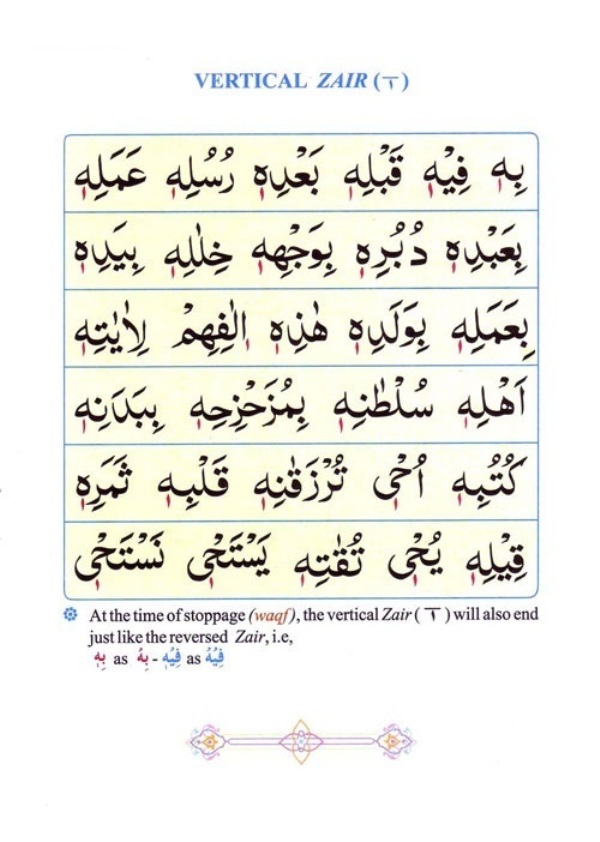 VERTICAL ZAIR ( ٖ )
بِهٖ فِيْهٖ قَبْلِهٖ بَعْدِهٖ رُسُلِهٖ عَمَلِهٖ
بِعَبْدِهٖ دُبُرِهٖ بِوَجْهِهٖ خِلٰلِهٖ بِيَدِهٖ
بِعَمَلِهٖ بِوَلَدِهٖ هٰذِهٖ اٖلٰفِهِمْ لِاٰيٰتِهٖ
اَهْلِهٖ سُلْطٰنِهٖ بِمُزَحْزِحِهٖ بِبَدَنِهٖ
كُتُبِهٖ اُحْیٖ تُرْزَقٰنِهٖ قَلْبِهٖ ثَمَرِهٖ
قِيْلِهٖ يُحْیٖ تُقٰتِهٖ يَسْتَحْیٖ نَسْتَحْیٖ
At the time of stoppage (waqf), the vertical Zair ( ٖ ) will also end
just like the reversed Zair, i.e,
بِهٖ as بِهْ - فِيْهٖ as فِيْهْ